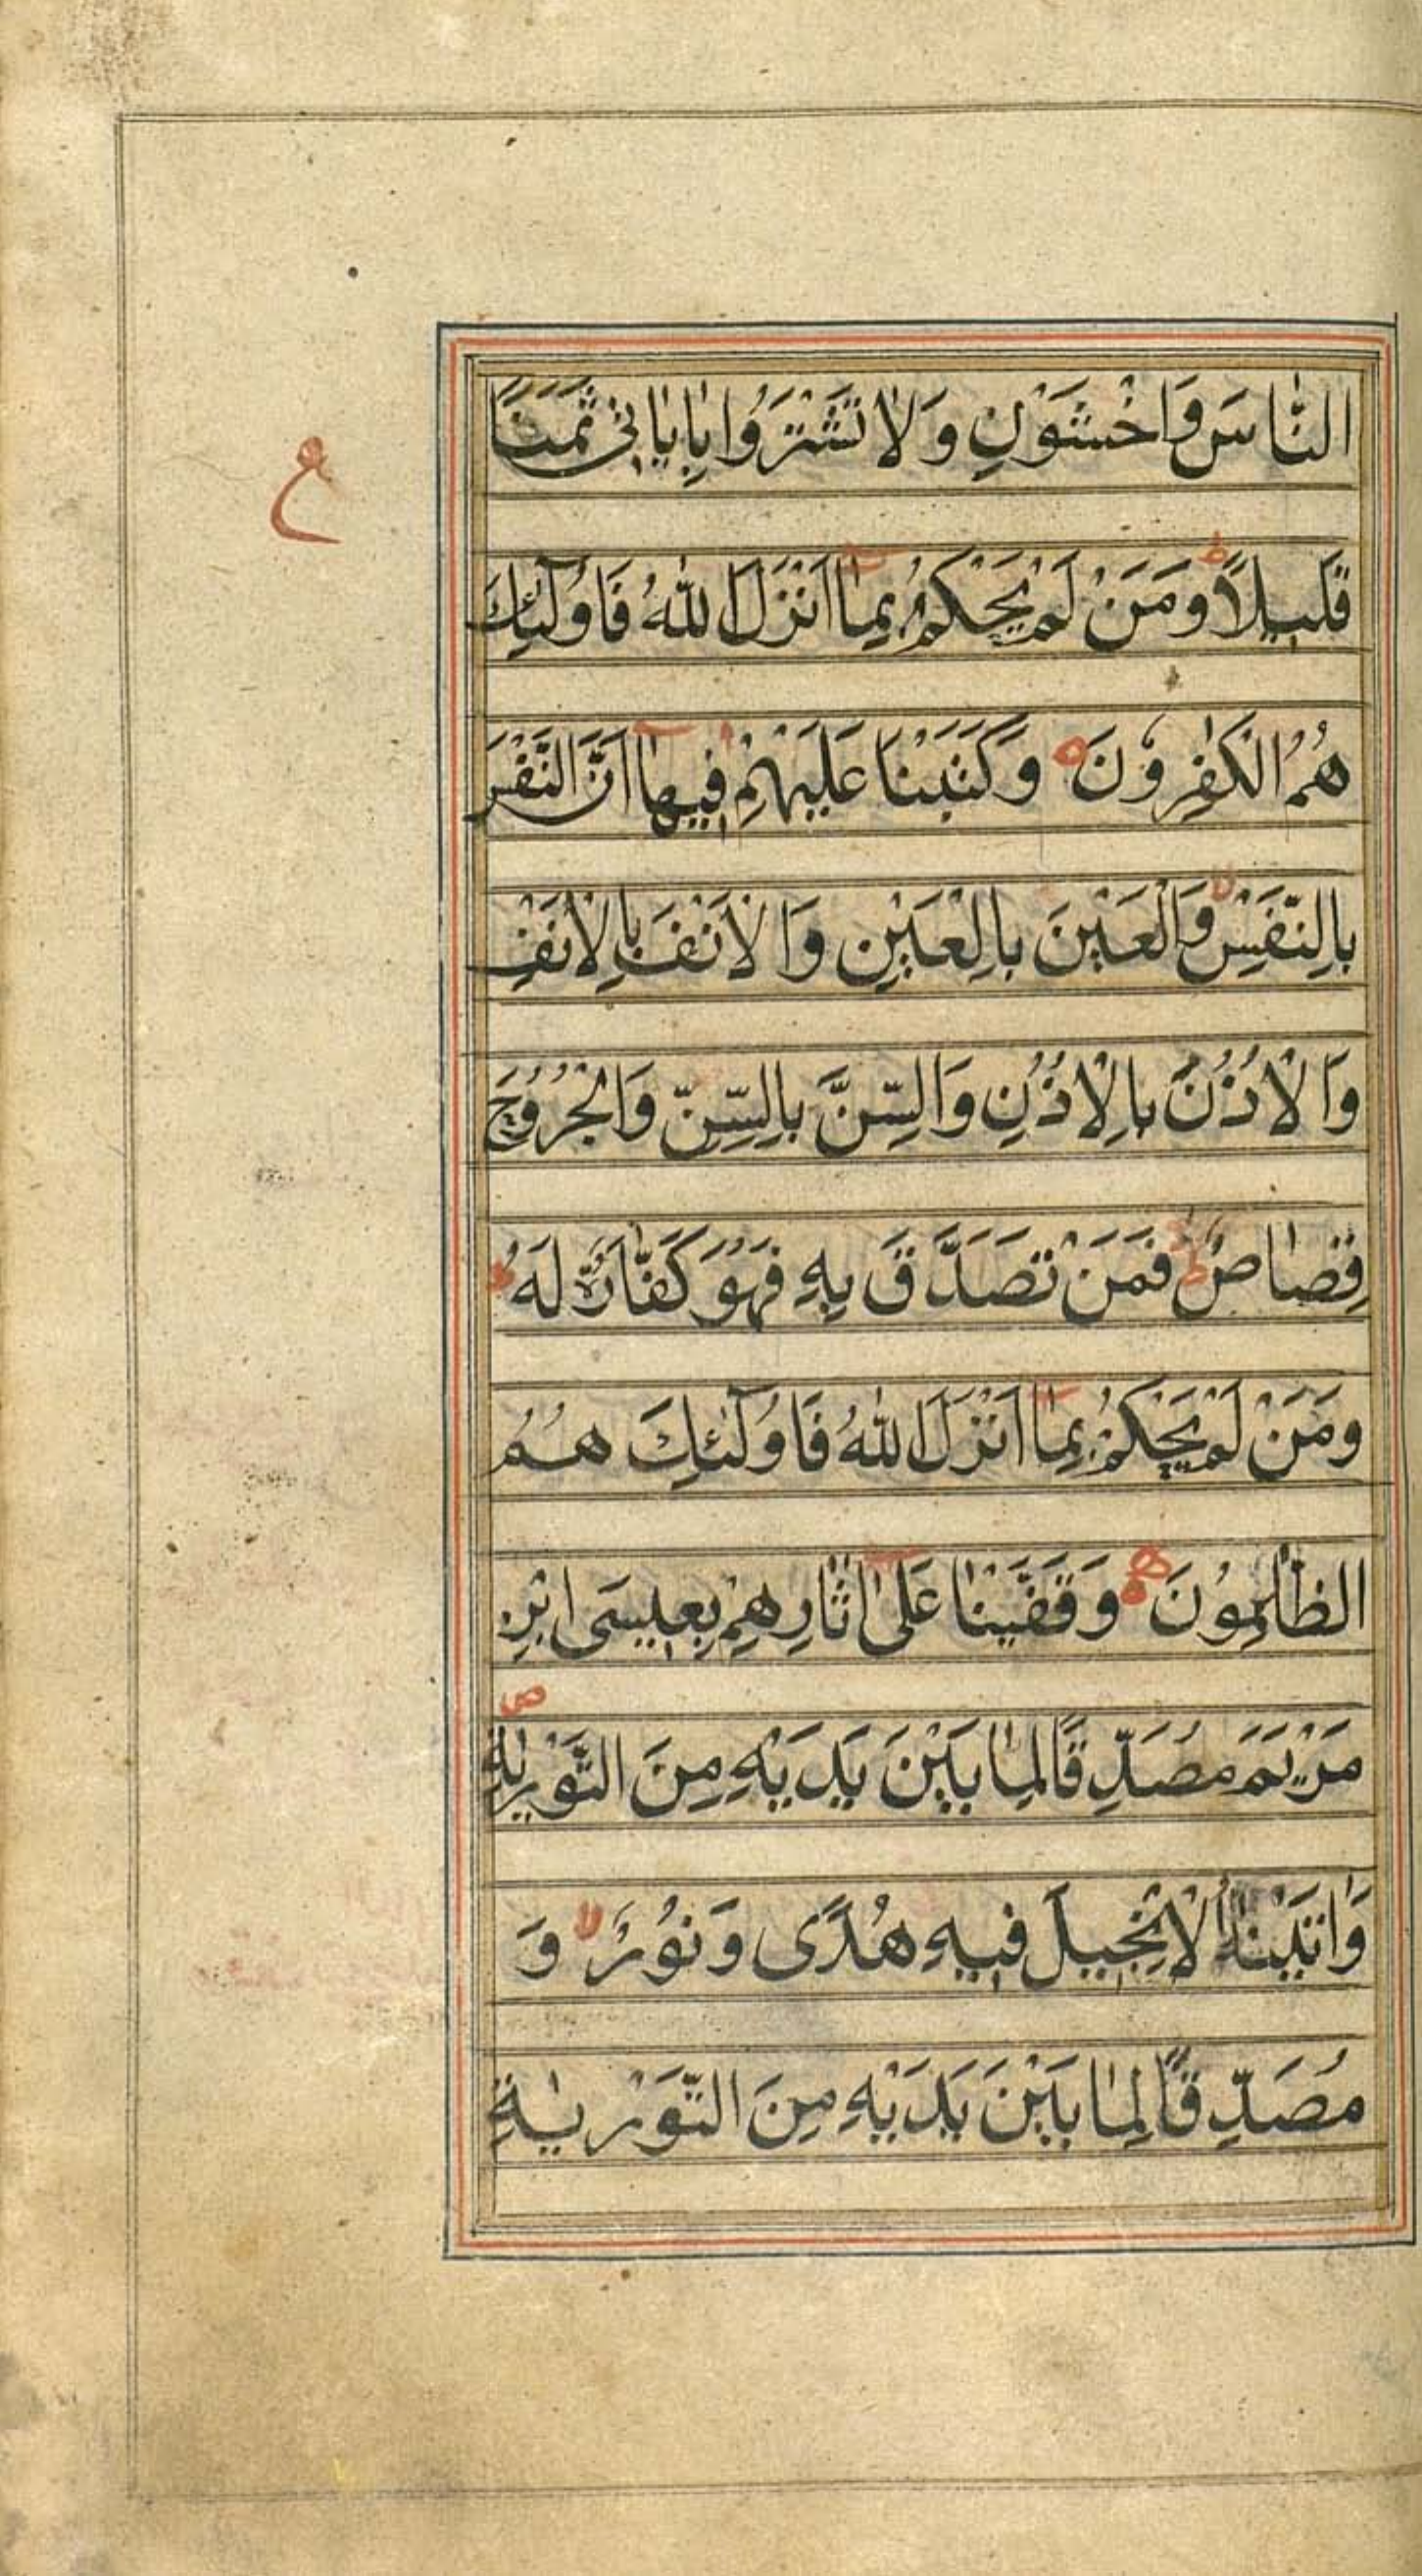 النَّاسَ وَاخْشَوْنِ وَلَا تَشْتَرُوا بِاٰيَاتِي ثَمَنًا
ع
قَلِيلًا ط وَمَنْ لَمْ يَحْكُمْ بِمَا اَنْزَلَ اللّٰهُ فَاُولٰئِكَ
هُمُ الْكٰفِرُونَ وَكَتَبْنَا عَلَيْهِمْ فِيهَا اَنَّ النَّفْسَ
بِالنَّفْسِ لا وَالْعَيْنَ بِالْعَيْنِ وَالْاَنْفَ بِالْاَنْفِ
وَالْاُذُنَ بِالْاُذُنِ وَالسِّنَّ بِالسِّنِّ وَالْجُرُوحَ
قِصَاصٌ ط فَمَنْ تَصَدَّقَ بِهِ فَهُوَ كَفَّارَةٌ لَهُ ط
وَمَنْ لَمْ يَحْكُمْ بِمَا اَنْزَلَ اللّٰهُ فَاُولٰئِكَ هُمُ
الظّٰلِمُونَ وَقَفَّيْنَا عَلٰى اٰثَارِهِمْ بِعِيسَى ابْنِ
مَرْيَمَ مُصَدِّقًا لِمَا بَيْنَ يَدَيْهِ مِنَ التَّوْرٰيةِ ص
وَاٰتَيْنٰهُ الْاِنْجِيلَ فِيهِ هُدًى وَنُورٌ لا وَ
مُصَدِّقًا لِمَا بَيْنَ يَدَيْهِ مِنَ التَّوْرٰيةِ